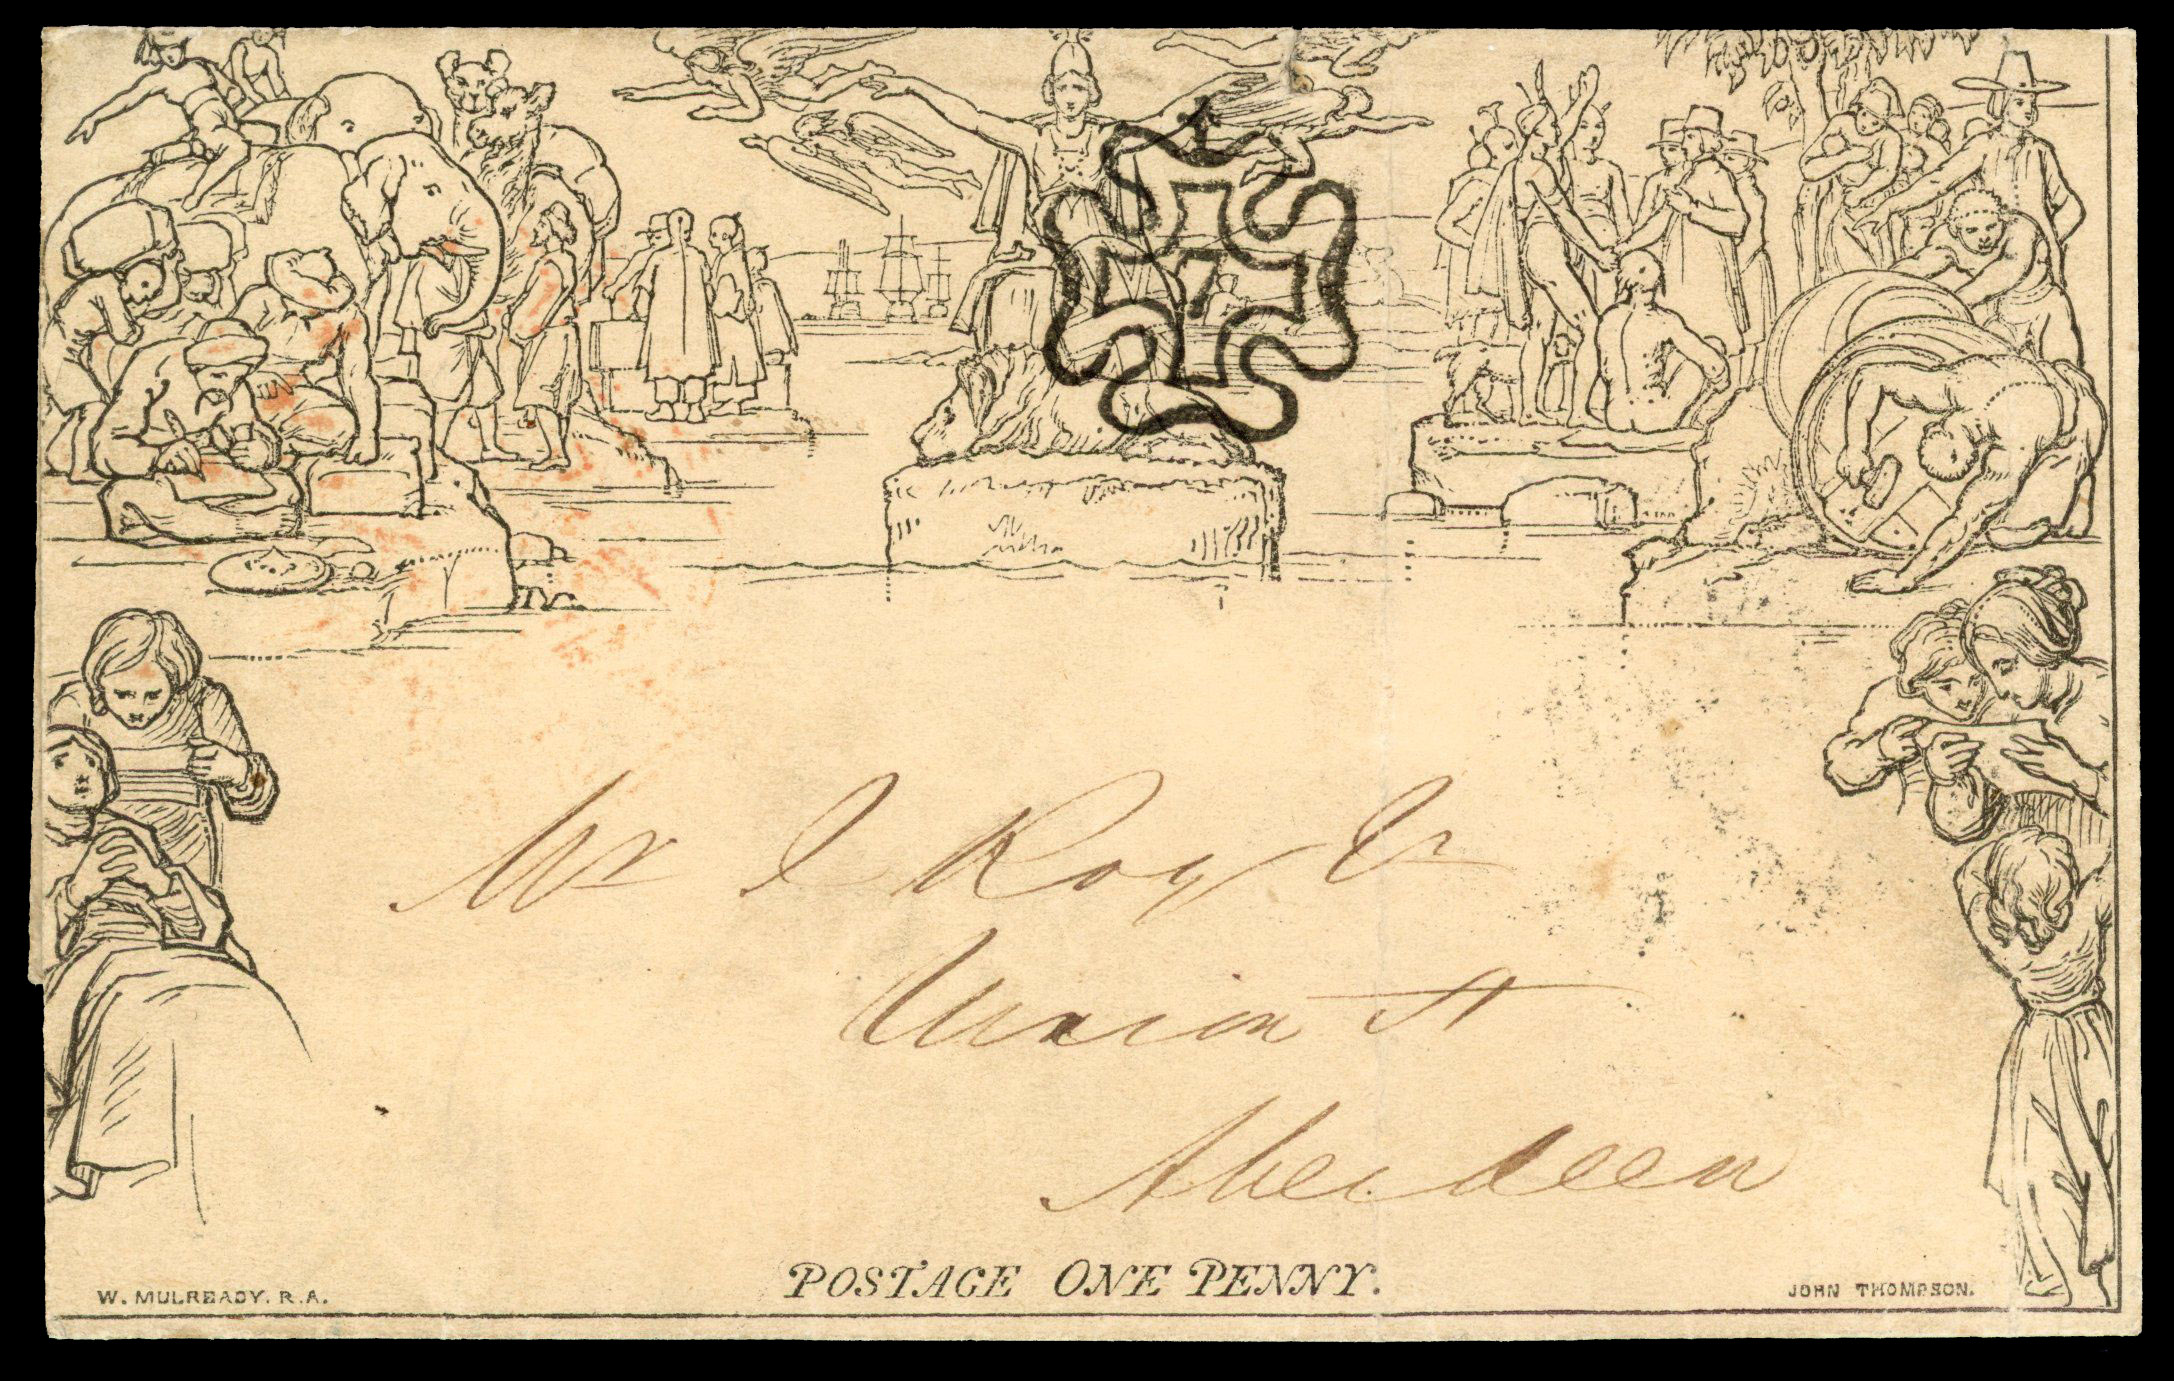 7
Mr J Roy Jr
Union St
Aberdeen
POSTAGE ONE PENNY.
W. MULREADY. R.A.
JOHN THOMPSON.